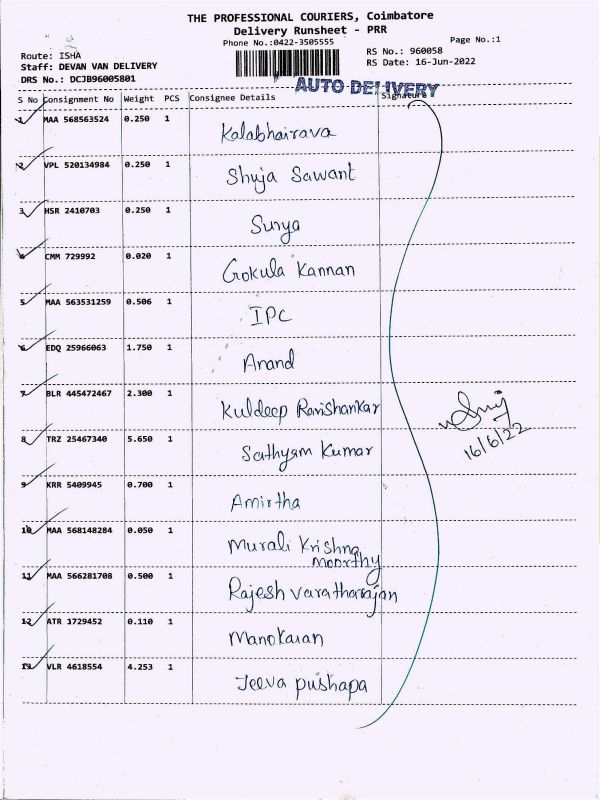 THE PROFESSIONAL COURIERS, Coimbatore
Delivery Runsheet - PRR
Phone No.:0422-3505555
Page No.:1
Route: ISHA
RS No.: 960058
Staff: DEVAN VAN DELIVERY
RS Date: 16-Jun-2022
DRS No.: DCJB96005801
AUTO DELIVERY
S No Consignment No Weight PCS Consignee Details Signature
1 MAA 568563524 0.250 1 Kalabhairava
2 VPL 520134984 0.250 1 Shuja Sawant
3 HSR 2410703 0.250 1 Surya
4 CMM 729992 0.020 1 Gokula Kannan
5 MAA 563531259 0.506 1 IPC
6 EDQ 25966063 1.750 1 Anand
7 BLR 445472467 2.300 1 Kuldeep Ravishankar
8 TRZ 25467340 5.650 1 Sathyam Kumar
16/6/22
9 KRR 5409945 0.700 1 Amirtha
10 MAA 568148284 0.050 1 Murali Krishna
moorthy
11 MAA 566281708 0.500 1 Rajesh varatharajan
12 ATR 1729452 0.110 1 Manokaran
13 VLR 4618554 4.253 1 Jeeva pushapa